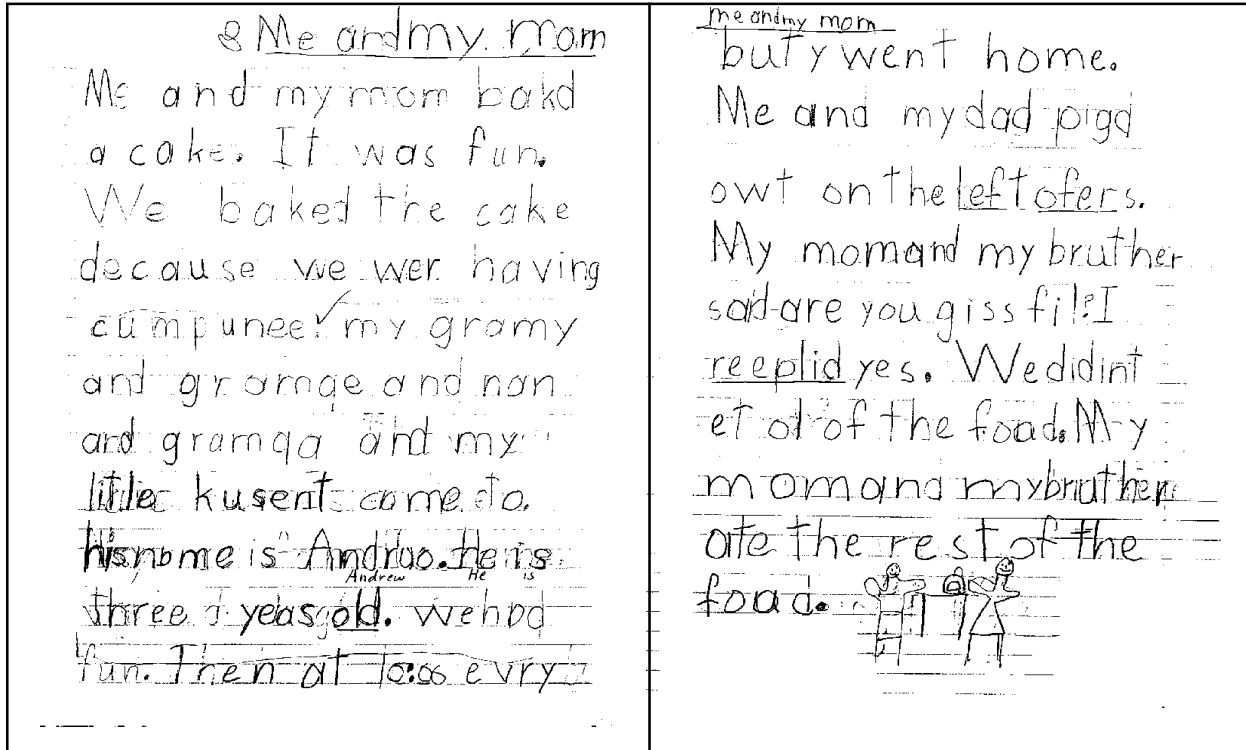 Me and my mom
Me and my mom bakd
a cake. It was fun.
We baked the cake
decause we wer having
cumpunee. my gramy
and gramqe and nan
and gramqa and my
little kusent came to.
his name is Andruo. He is
Andrew He is
three yeas old. we had
fun. Then at 10:00 evry
me and my mom
buty went home.
Me and my dad pigd
owt on the leftofers.
My mom and my bruther
sad are you giss fil? I
reeplid yes. We didint
et ol of the foad. My
mom and my bruther
ate the rest of the
foad.